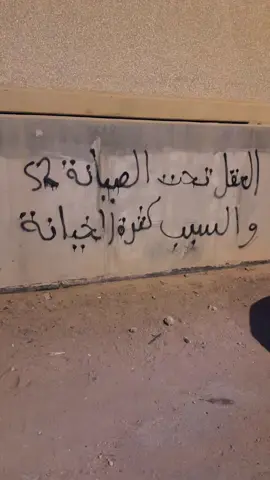 العقل تحت الصيانة 52
والسبب كثرة الخيانة